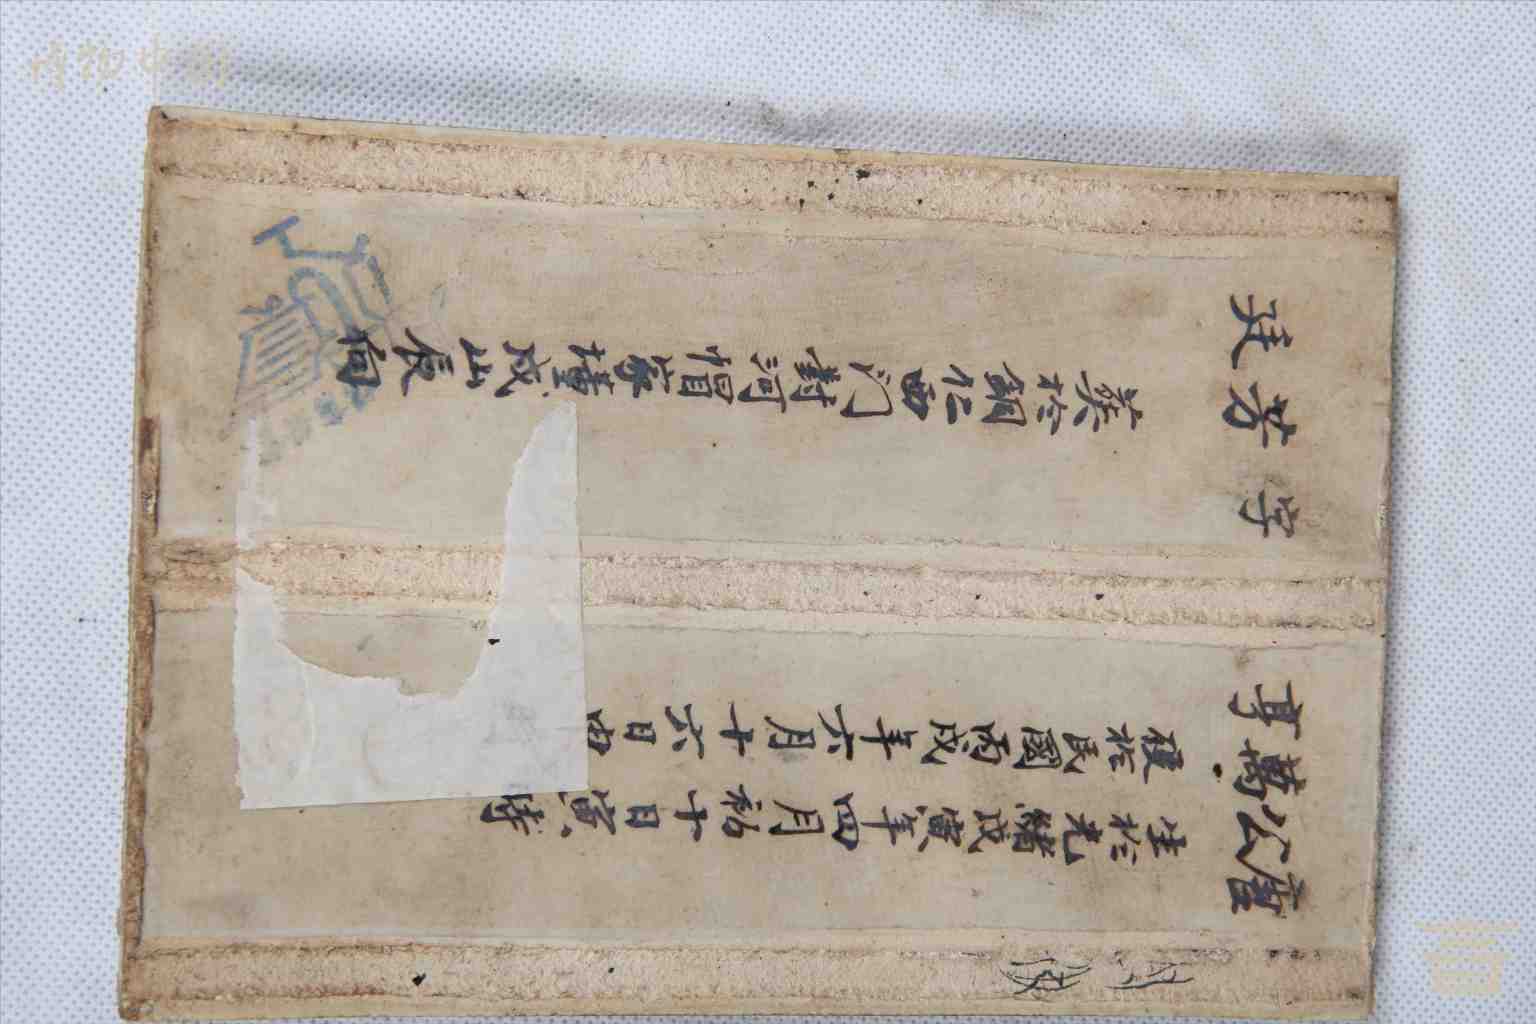 富公萬享
生於光緒戊寅年四月初十日寅時
於民國丙戌年六月十六日申
字芳廷
葬於銅仁西門對河帽家戌山辰向